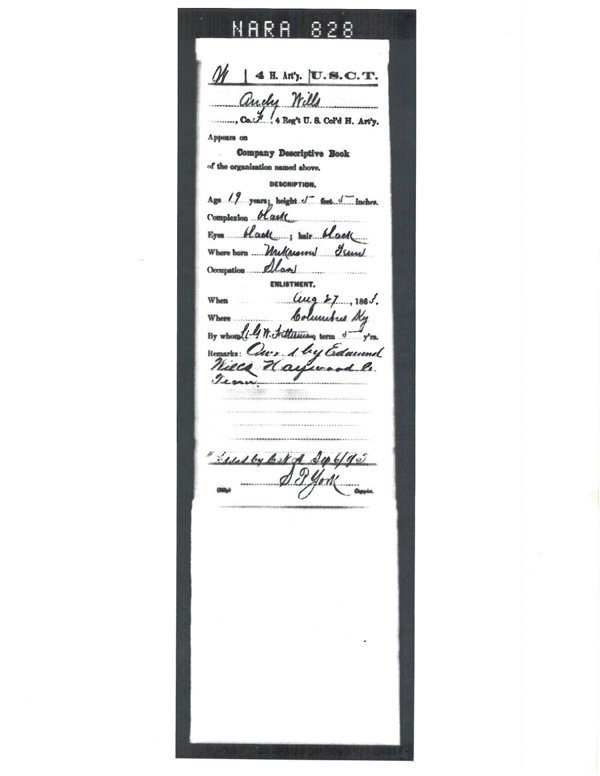 NARA 828
W | 4 H. Art'y. | U.S.C.T.
Andy Wills
, Co. F, 4 Reg't U. S. Col'd H. Art'y.
Appears on
Company Descriptive Book
of the organization named above.
DESCRIPTION.
Age 19 years; height 5 feet 5 inches.
Complexion black
Eyes black ; hair black
Where born Unknown Tenn
Occupation Slave
ENLISTMENT.
When Aug 27, 1863.
Where Columbus Ky
By whom Lt G W Fetterman, term 5 y'rs.
Remarks: Owned by Edmund
Wills Haywood Co.
Tenn.
by
S P York
Copyist.